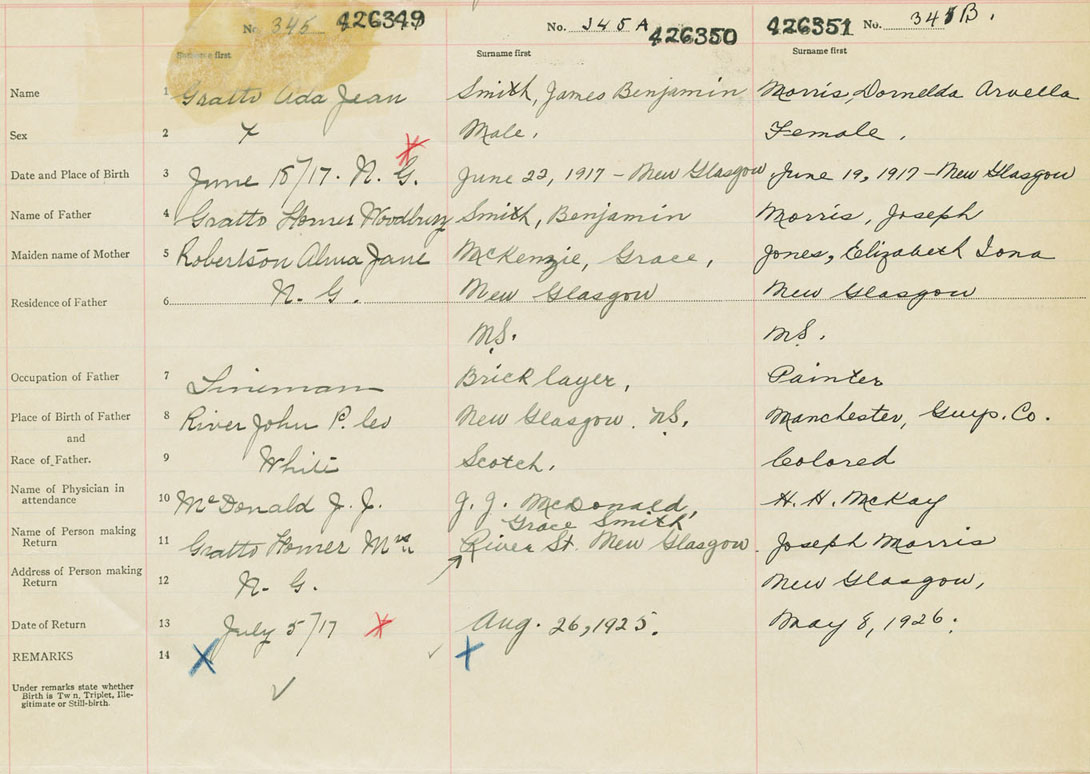 No. 345 426349 No. 345 A 426350 426351 No. 345 B.
Surname first Surname first Surname first
Name 1 Gratto Ada Jean Smith, James Benjamin Morris, Dornelda Arvella
Sex 2 Male. Female.
Date and Place of Birth 3 June 18/17. N. G. June 22, 1917 - New Glasgow June 19, 1917 - New Glasgow
Name of Father 4 Gratto Homer Woodbury Smith, Benjamin Morris, Joseph
Maiden name of Mother 5 Robertson Alma Jane McKenzie, Grace, Jones, Elizabeth Iona
Residence of Father 6 N. G. New Glasgow New Glasgow
N.S. N.S.
Occupation of Father 7 Lineman Bricklayer, Painter
Place of Birth of Father 8 River John P. Co New Glasgow. N.S. Manchester, Guys. Co.
and
Race of Father. 9 White Scotch. Colored
Name of Physician in
attendance 10 McDonald J. J. J. J. McDonald, H. H. McKay
Grace Smith
Name of Person making
Return 11 Gratto Homer Mrs. River St. New Glasgow. Joseph Morris
Address of Person making
Return 12 N. G. New Glasgow,
Date of Return 13 July 5/17 Aug. 26, 1925. May 8, 1926.
REMARKS 14
Under remarks state whether
Birth is Tw n, Triplet, Ille-
gitimate or Still-birth.